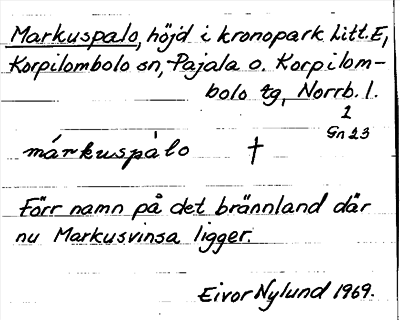 Markuspalo, höjd i kronopark Litt. E,
Korpilombolo sn, Pajala o. Korpilom-
bolo tg, Norrb. l.
1
Gn 23
márkuspàlo †
Förr namn på det brännland där
nu Markusvinsa ligger.
Eivor Nylund 1969.